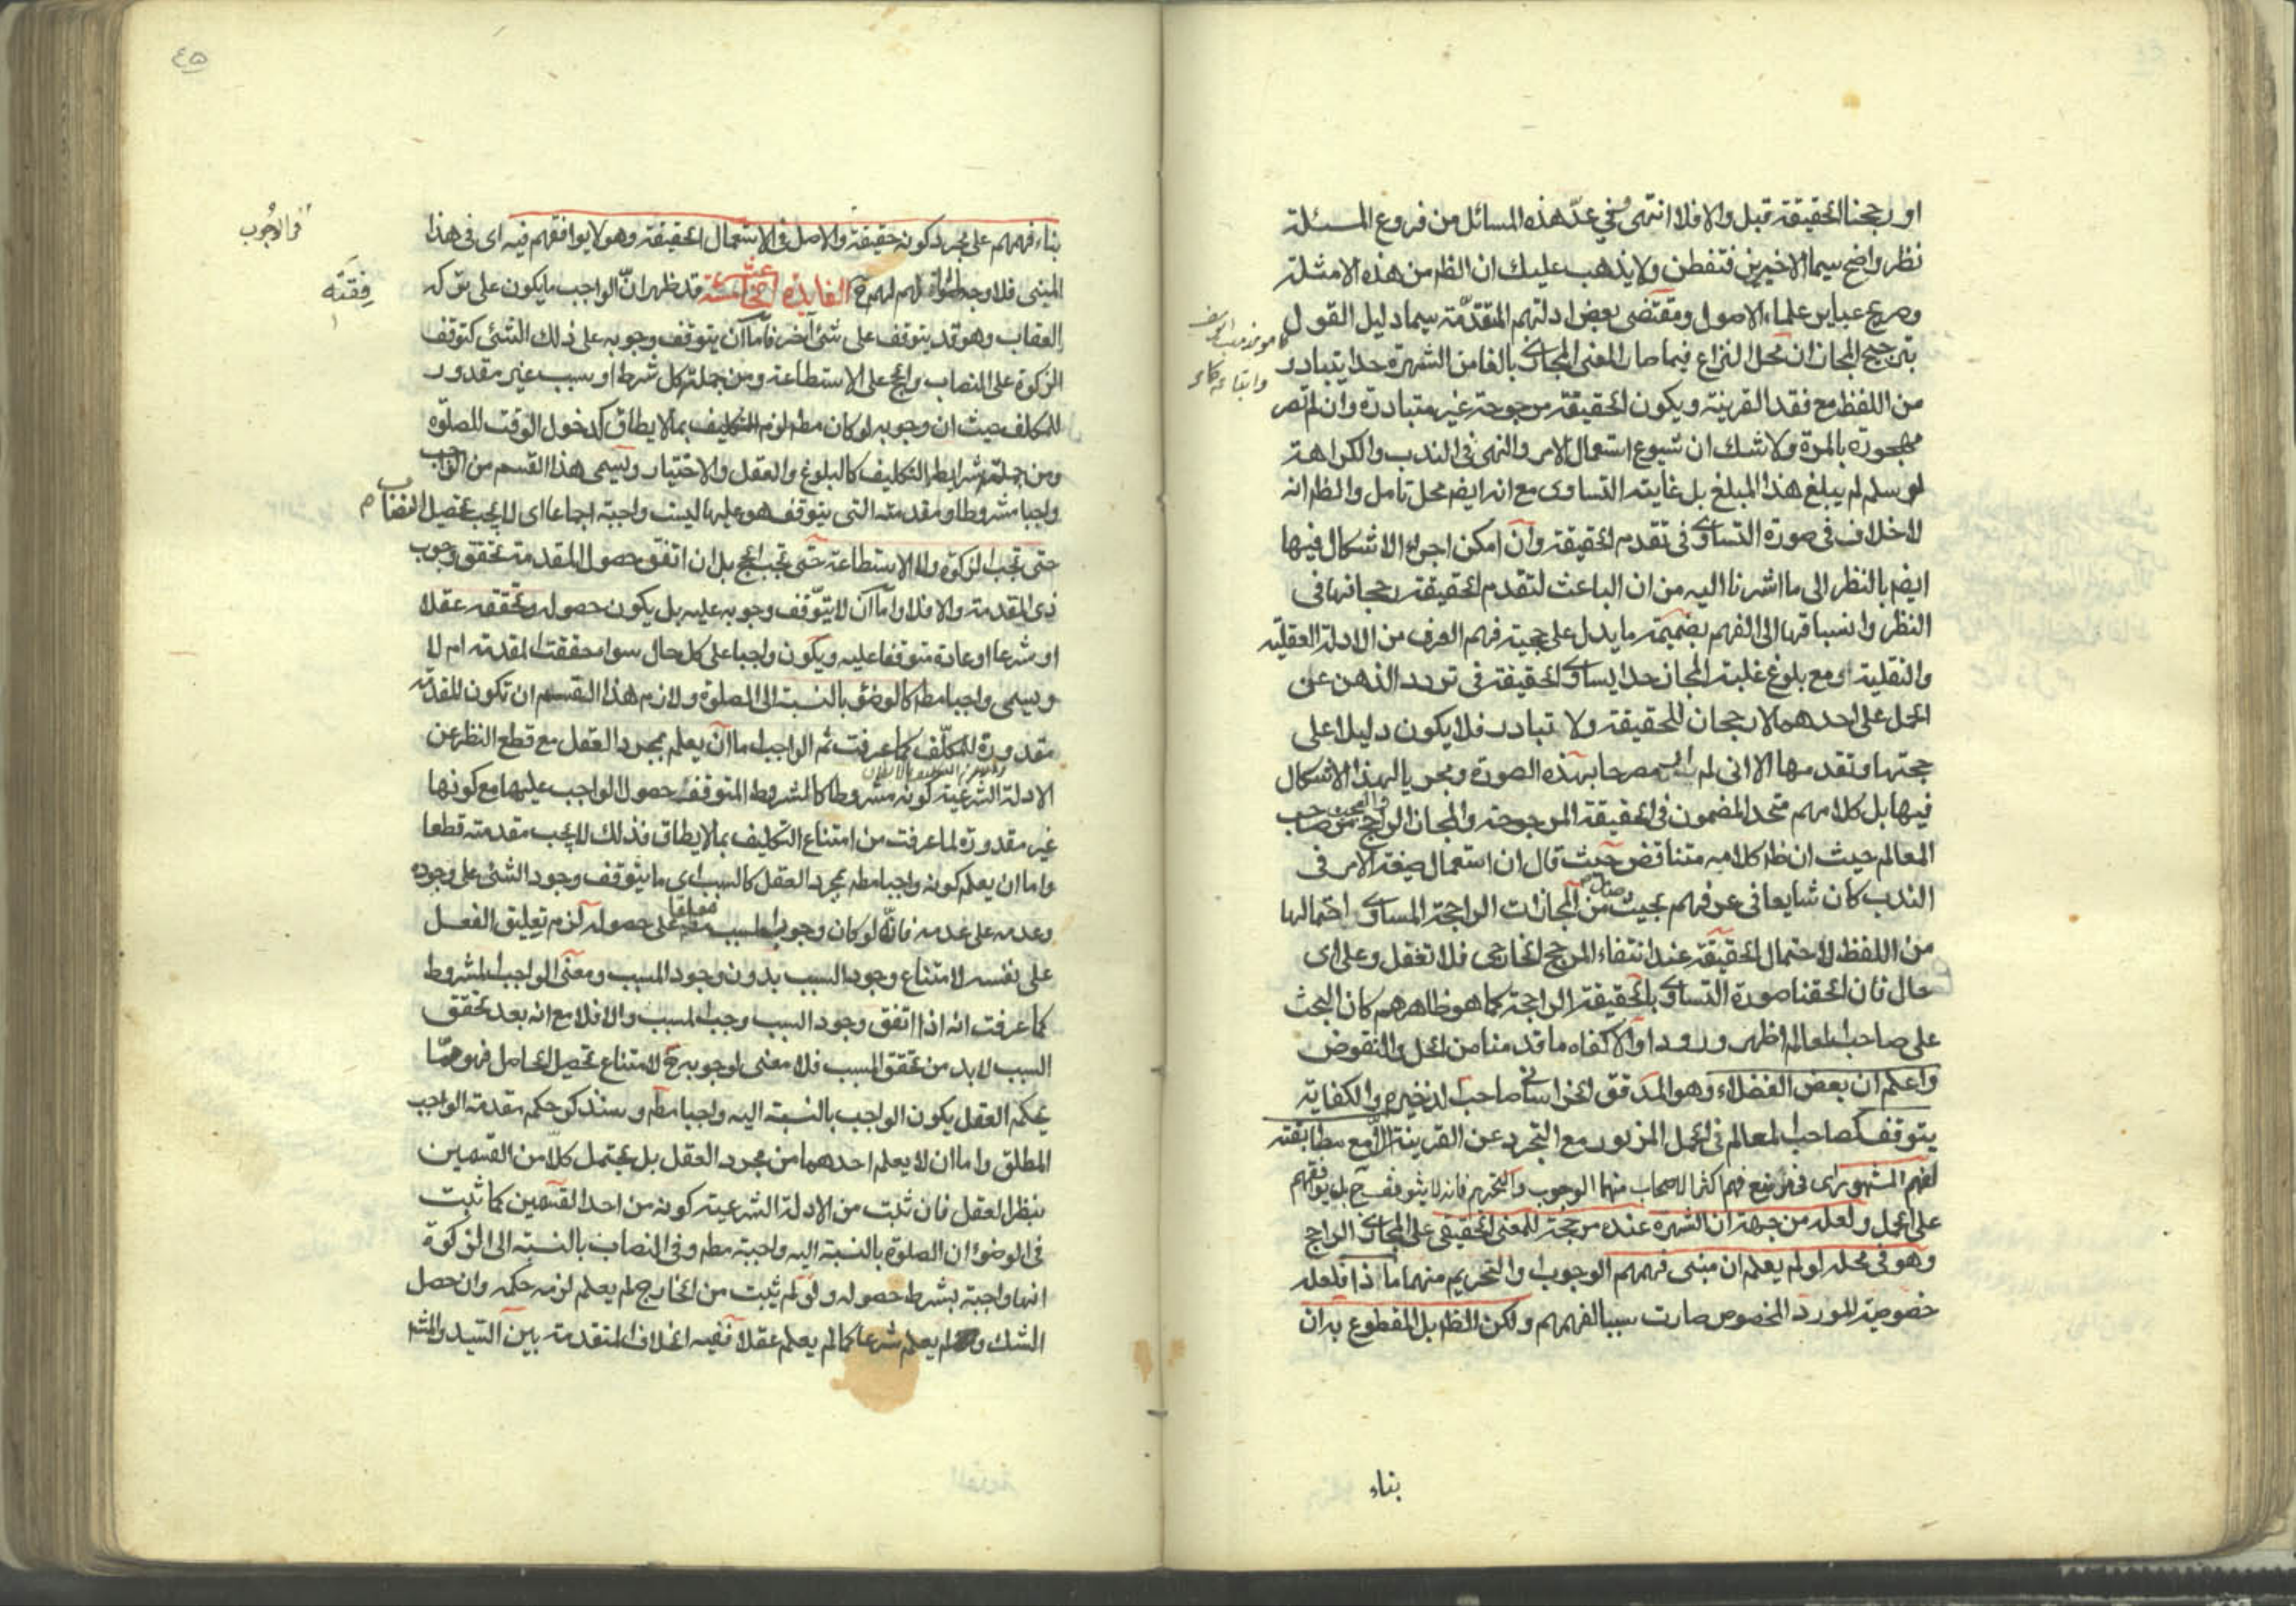 او رجحنا الحقيقة قبل والا فلا انتهى وفي عدّ هذه المسائل من فروع المسئلة
نظر واضح سيما الاخيرين فتفطن ولا يذهب عليك ان الظ من هذه الامثلة
وصريح عباير علماء الاصول ومقتضى بعض ادلتهم المتقدّمة سيما دليل القول
بترجيح المجاز ان محل النزاع فيما صار المعنى المجازى بالغا من الشهرة حدا يتبادر
من اللفظ مع فقد القرينة ويكون الحقيقة مرجوحة غير متبادرة وان لم تصر
مهجورة بالمرة ولا شك ان شيوع استعمال الامر والنهى في الندب والكراهة
لو سلم لم يبلغ هذا المبلغ بل غايته التساوى مع انه ايضم محل تامل والظ انه
لا خلاف في صورة التساوى في تقدم الحقيقة وان امكن اجراء الاشكال فيها
ايضم بالنظر الى ما اشرنا اليه من ان الباعث لتقدم الحقيقة رجحانها في
النظر وانسباقها الى الفهم بضميمة ما يدل على حجية فهم العرف من الادلة العقلية
والنقلية ومع بلوغ غلبة المجاز حدا يساوى الحقيقة في تردد الذهن عن
الحمل على احدهما لا رجحان للحقيقة ولا تبادر فلا يكون دليلا على
حجتها وتقدمها الا انى لم ار مصرحا بهذه الصورة ومجريا لهذا الاشكال
فيها بل كلامهم متحد المضمون في الحقيقة المرجوحة والمجاز الراجح من صاحب
المعالم حيث ان ظ كلامه متناقض حيث قال ان استعمال صيغة الامر في
الندب كان شايعا في عرفهم بحيث صار من المجازات الراجحة المساوى احتمالها
من اللفظ لاحتمال الحقيقة عند انتفاء المرجح الخارجى فلا تغفل وعلى اى
حال فان الحقنا صورة التساوى بالحقيقة الراجحة كما هو ظاهرهم كان البحث
على صاحب المعالم اظهر ورودا والا كفاه ما قدمنا من الحل والنقوض
واعلم ان بعض الفضلاء وهو المدقق الخراسانى صاحب الذخيرة والكفاية
يتوقف كصاحب المعالم في الحمل المزبور مع التجرد عن القرينة الا مع مطابقته
لفهم المشهور اى في موضع فهم اكثر الاصحاب منهما الوجوب والتحريم فانه لا يتوقف ح بل يوافقهم
على الحمل ولعله من جهة ان الشهرة عنده مرجحة للمعنى الحقيقى على المجازى الراجح
وهو في محله لو لم يعلم ان مبنى فهمهم الوجوب والتحريم منهما ما ذا فلعله
خصوصية المورد المخصوص صارت سببا لفهمهم ولكن الظ بل المقطوع به ان
بناء
٤٥
بناء فهمهم على مجرد كونه حقيقة والاصل في الاستعمال الحقيقة وهو لا يوافقهم فيه اى في هذا
المبنى فلا وجه لموافقته لهم ح الفايدة الخامسة عشر قد ظهر ان الواجب ما يكون على تركه
العقاب وهو قد يتوقف على شئ آخر فاما ان يتوقف وجوبه على ذلك الشئ كتوقف
الزكوة على النصاب والحج على الاستطاعة ومن جملته كل شرط او سبب غير مقدور
للمكلف حيث ان وجوبه لو كان مط لزم التكليف بما لا يطاق كدخول الوقت للصلوة
ومن جملته شرايط التكليف كالبلوغ والعقل والاختيار ويسمى هذا القسم من الواجب
واجبا مشروطا ومقدمته التى يتوقف هو عليها ليست واجبة اجماعا اى لا يجب تحصيل النصاب
حتى تجب الزكوة ولا الاستطاعة حتى تجب الحج بل ان اتفق حصول المقدمة تحقق وجوب
ذى المقدمة والا فلا واما ان لا يتوقف وجوبه عليه بل يكون حصوله وتحققه عقلا
او شرعا او عادة متوقفا عليه ويكون واجبا على كل حال سواء تحققت المقدمة ام لا
ويسمى واجبا مط كالوضوء بالنسبة الى الصلوة ولازم هذا القسم ان تكون المقدمة
مقدورة للمكلف كما عرفت ثم الواجب اما ان يعلم بمجرد العقل مع قطع النظر عن
الادلة الشرعية كونه مشروطا كالشروط المتوقف حصول الواجب عليها مع كونها
غير مقدورة لما عرفت من امتناع التكليف بما لا يطاق فذلك لا يجب مقدمته قطعا
واما ان يعلم كونه واجبا مط بمجرد العقل كالسبب اى ما يتوقف وجود الشئ على وجوده
وعدمه على عدمه فانه لو كان وجوب المسبب معلقا على حصوله لزم تعليق الفعل
على نفسه لامتناع وجود السبب بدون وجود المسبب ومعنى الواجب المشروط
كما عرفت انه اذا اتفق وجود السبب وجب المسبب والا فلا مع انه بعد تحقق
السبب لا بد من تحقق المسبب فلا معنى لوجوبه ح لامتناع تحصيل الحاصل فهو مما
يحكم العقل بكون الواجب بالنسبة اليه واجبا مط وسنذكر حكم مقدمة الواجب
المطلق واما ان لا يعلم احدهما من مجرد العقل بل يحتمل كلا من القسمين
بنظر العقل فان ثبت من الادلة الشرعية كونه من احد القسمين كما ثبت
في الوضوء ان الصلوة بالنسبة اليه واجبة مط وفي النصاب بالنسبة الى الزكوة
انها واجبة بشرط حصوله ولو لم يثبت من الخارج لم يعلم لزمه حكمه وان حصل
الشك ولم يعلم شرعا كما لم يعلم عقلا ففيه الخلاف المتقدمة بين السيد والمش